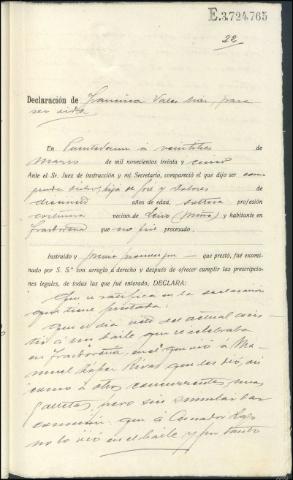 E.3.724.765
22
Declaración de Francisca Vales para
ser oída
En Puentedeume a veintitres de
Marzo de mil novecientos treinta y cinco
Ante el Sr. Juez de instrucción y mi Secretario, compareció el que dijo ser como
queda dicho, hija de José y Dolores de
diecinueve años de edad, soltera profesión
costurera vecino de (Miño) y habitante en
que no fué procesado.
Instruído y que prestó, fué exami-
nado por S. S.ª con arreglo á derecho y después de ofrecer cumplir las prescripcio-
nes legales, de todas las que fué enterado, DECLARA:
Que se ratifica en la declaración
que tiene prestada.
Que el día del actual asis-
tió á un baile que se celebraba
en en el que vió á Ma-
nuel López Rivas que les dió, asi
como á otros concurrentes, unas
galletas, pero sin
que á Amador
no lo vió en el baile y por tanto